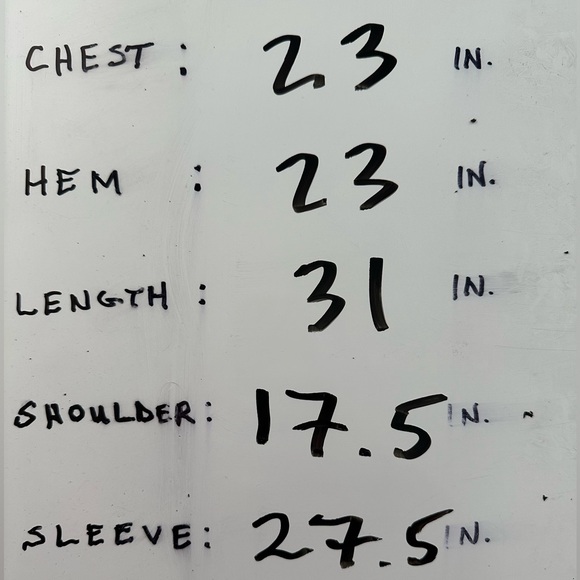 CHEST: 23 IN.
HEM : 23 IN.
LENGTH: 31 IN.
SHOULDER: 17.5 IN.
SLEEVE: 27.5 IN.